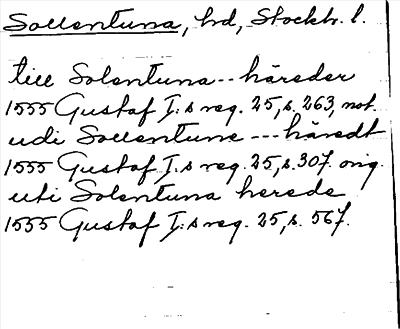 Sollentuna, hd, Stockh. l.
till Solentuna -- häreder
1555 Gustaf I:s reg. 25, s. 263, not.
udi Sollentune --- häredt
1555 Gustaf I:s reg. 25, s. 307. orig.
uti Solentuna herede
1555 Gustaf I:s reg. 25, s. 567.